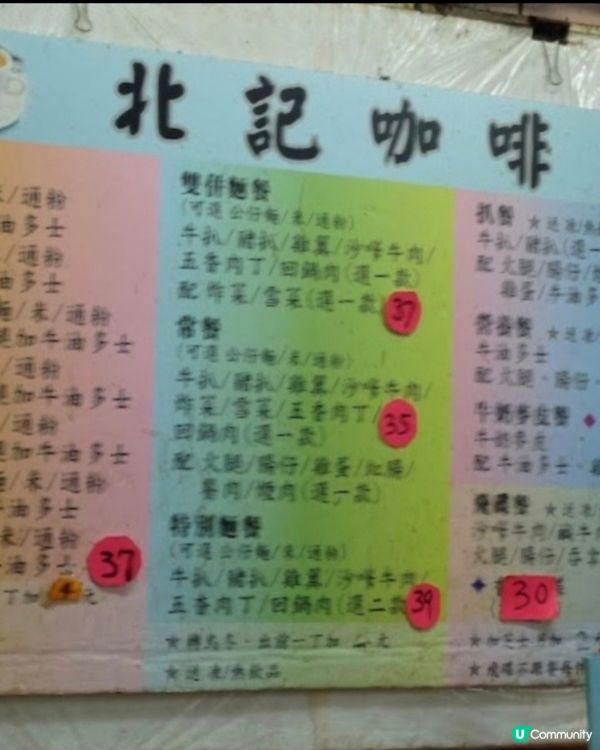 北記咖啡
/通粉
油多士
/通粉
油多士
/米/通粉
加牛油多士
/通粉
加牛油多士
/通粉
加牛油多士
/米/通粉
油多士
米/通粉
油多士
37
丁加 4 元
雙併麵餐
(可選 公仔麵/米/通粉)
牛扒/豬扒/雞翼/沙嗲牛肉/
五香肉丁/回鍋肉(選一款)
配 炸菜/雪菜(選一款)
37
常餐
(可選 公仔麵/米/通粉)
牛扒/豬扒/雞翼/沙嗲牛肉/
炸菜/雪菜/五香肉丁/
回鍋肉(選一款)
35
配 火腿/腸仔/雞蛋/紅腸/
餐肉/煙肉(選一款)
特別麵餐
(可選 公仔麵/米/通粉)
牛扒/豬扒/雞翼/沙嗲牛肉/
五香肉丁/回鍋肉(選二款
39
★轉烏冬、出前一丁加 4 元
★送 凍/熱飲品
扒餐 ★送 凍/熱
牛扒/豬扒(選一
配 火腿/腸仔/
雞蛋/牛油多
營養餐 ★送 凍/
牛油多士
配 火腿、腸仔、
牛奶麥皮餐 ◆
牛奶麥皮
配 牛油多士、
飛碟餐 ★送 凍
沙嗲牛肉/鹹牛
火腿/腸仔/吞拿
30
★加芝士 另加 2
★飛碟不跟
U Community